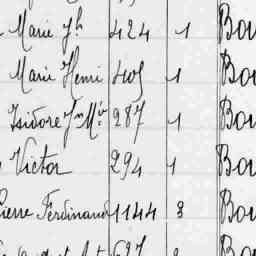 Marie Jh 424 1 Bou
Marie Henri 405 1 Bou
Isidore Jn Mie 287 1 Bou
Victor 294 1 Bou
Pierre Ferdinand 1144 8 Bou
637